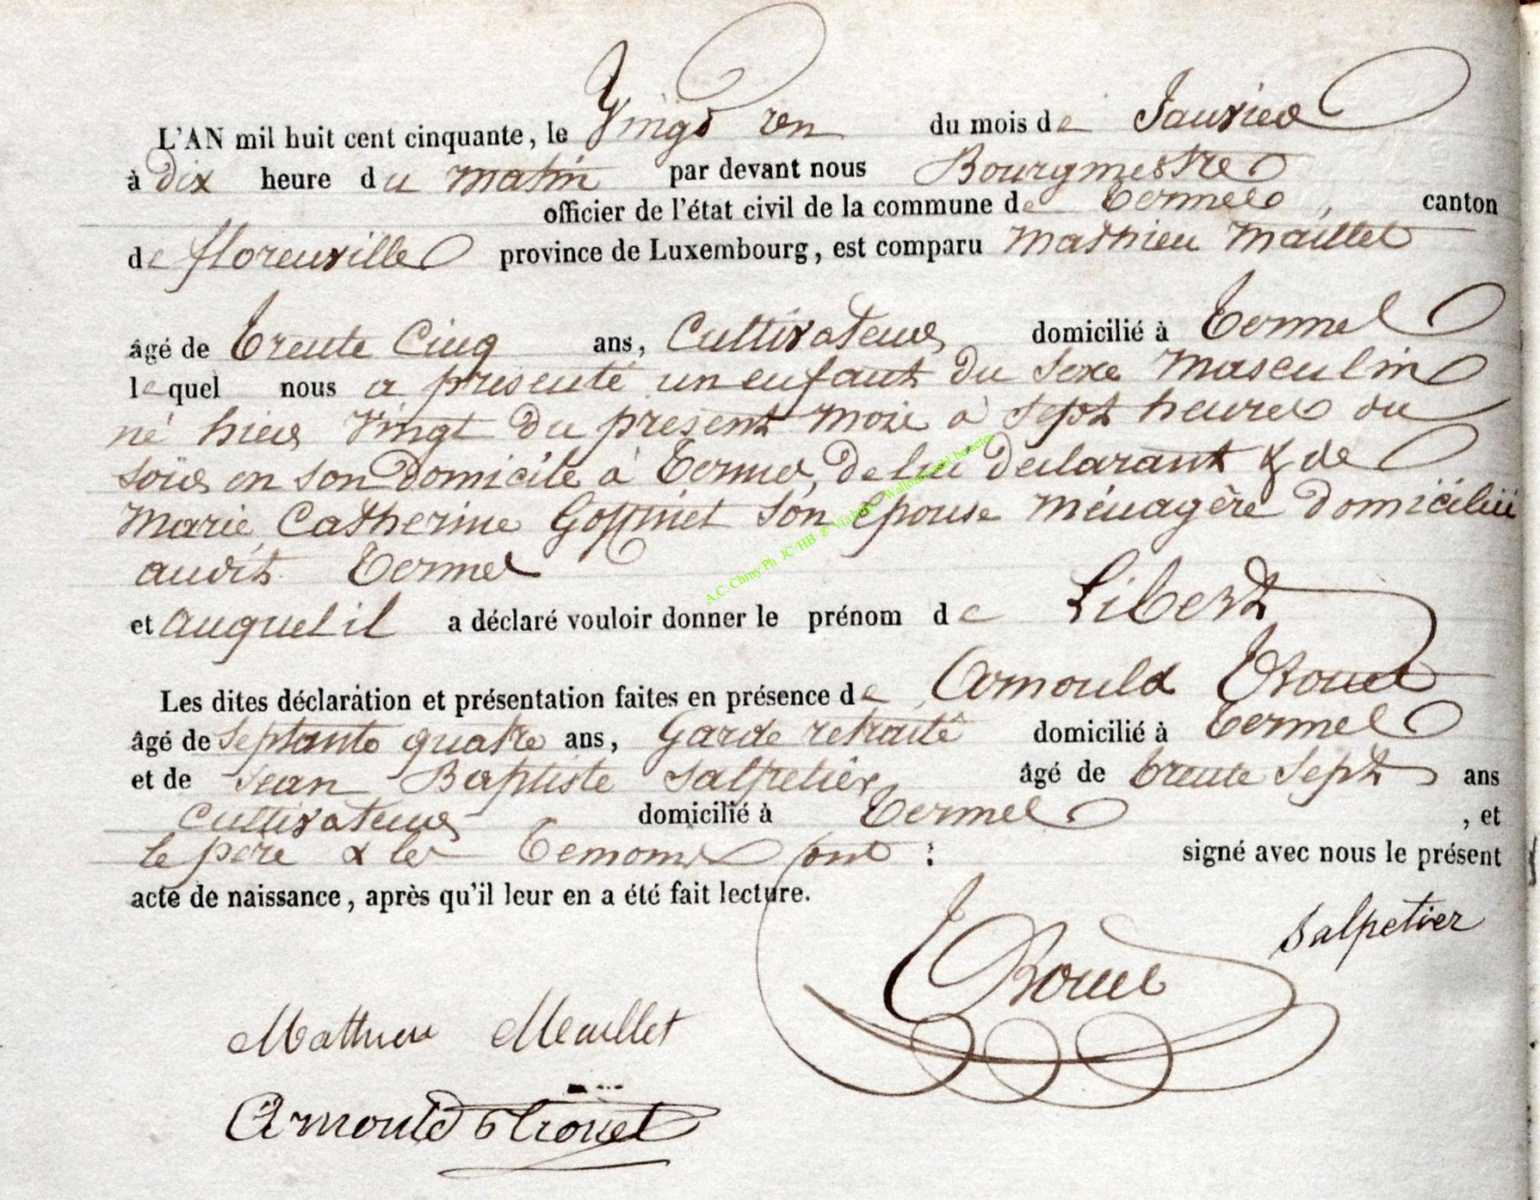 L'AN mil huit cent cinquante, le Vingt un du mois de Janvier
à dix heure du matin par devant nous Bourgmestre
officier de l'état civil de la commune de Termes, canton
de florenville province de Luxembourg, est comparu Mathieu Maillet
âgé de trente Cinq ans, Cultivateur domicilié à Termes
lequel nous a présenté un enfant du sexe Masculin
né hier Vingt du présent mois à sept heures du
soir en son domicile à Termes, de lui déclarant & de
Marie Catherine Goffinet son Épouse Ménagère domiciliée
audit Termes
et auquel il a déclaré vouloir donner le prénom de Libert
Les dites déclaration et présentation faites en présence de Arnould
âgé de septante quatre ans, Garde retraité domicilié à Termes
et de Jean Baptiste Salpetier âgé de trente Sept ans
Cultivateur domicilié à Termes, et
le père & les Témoins ont : signé avec nous le présent
acte de naissance, après qu'il leur en a été fait lecture.
Salpetier
Mathieu Maillet
Arnould